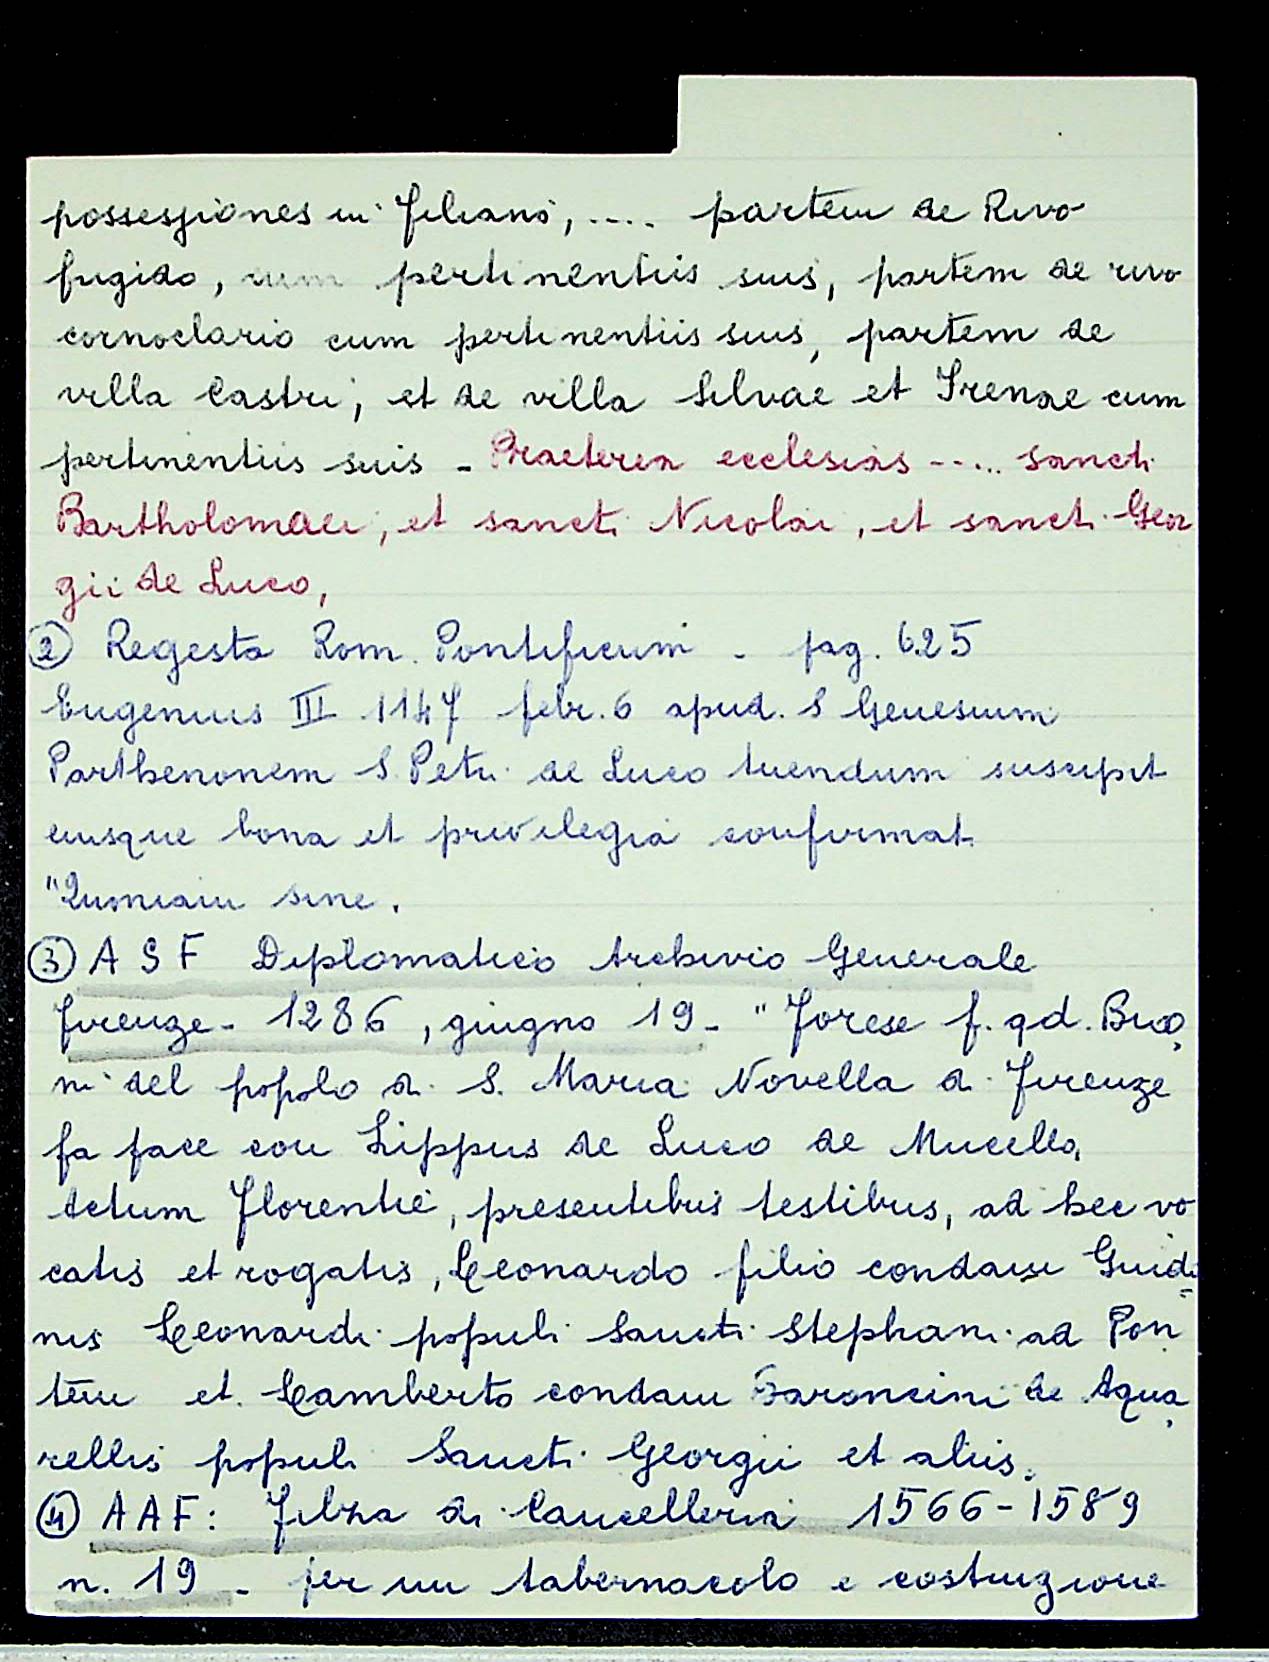 possessiones in Filiano, .... partem de Rivo
fugido, cum pertinentiis suis, partem de rivo
cornoclario cum pertinentiis suis, partem de
villa Castri, et de villa Silvae et Frenae cum
pertinentiis suis - Praeterea ecclesias ..... sancti
Bartholomaei, et sancti Nicolai, et sancti Geor
gii de Luco,
② Regesta Rom. Pontificum - pag. 625
Eugenius III 1147 febr. 6 apud. S Genesium
Parthenonem S. Petri de Luco tuendum suscipit
eiusque bona et privilegia confirmat
"Quoniam sine.
③ A S F Diplomatico Archivio Generale
Firenze - 1286, giugno 19 - "Forese f. qd. Buo,
ni del popolo di S. Maria Novella di Firenze
fa pace con Lippus de Luco de Mucello,
Actum Florentie, presentibus testibus, ad hec vo
catis et rogatis, Leonardo filio condam Guidi=
nis Leonardi populi Sancti Stephani ad Pon
tem et Lamberto condam Baroncini de Aqua,
rellis populi Sancti Georgii et aliis.
④ A A F: Filza di Cancelleria 1566-1589
n. 19 - per un tabernacolo e costruzione